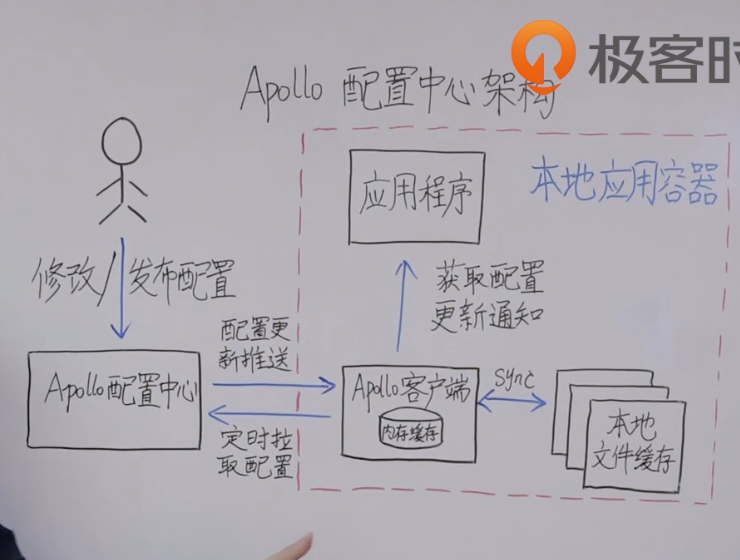 极客时
Apollo 配置中心架构
本地应用容器
应用程序
修改/发布配置
获取配置
更新通知
配置更
新推送
Apollo配置中心
定时拉
取配置
Apollo客户端
内存缓存
sync
本地
文件缓存